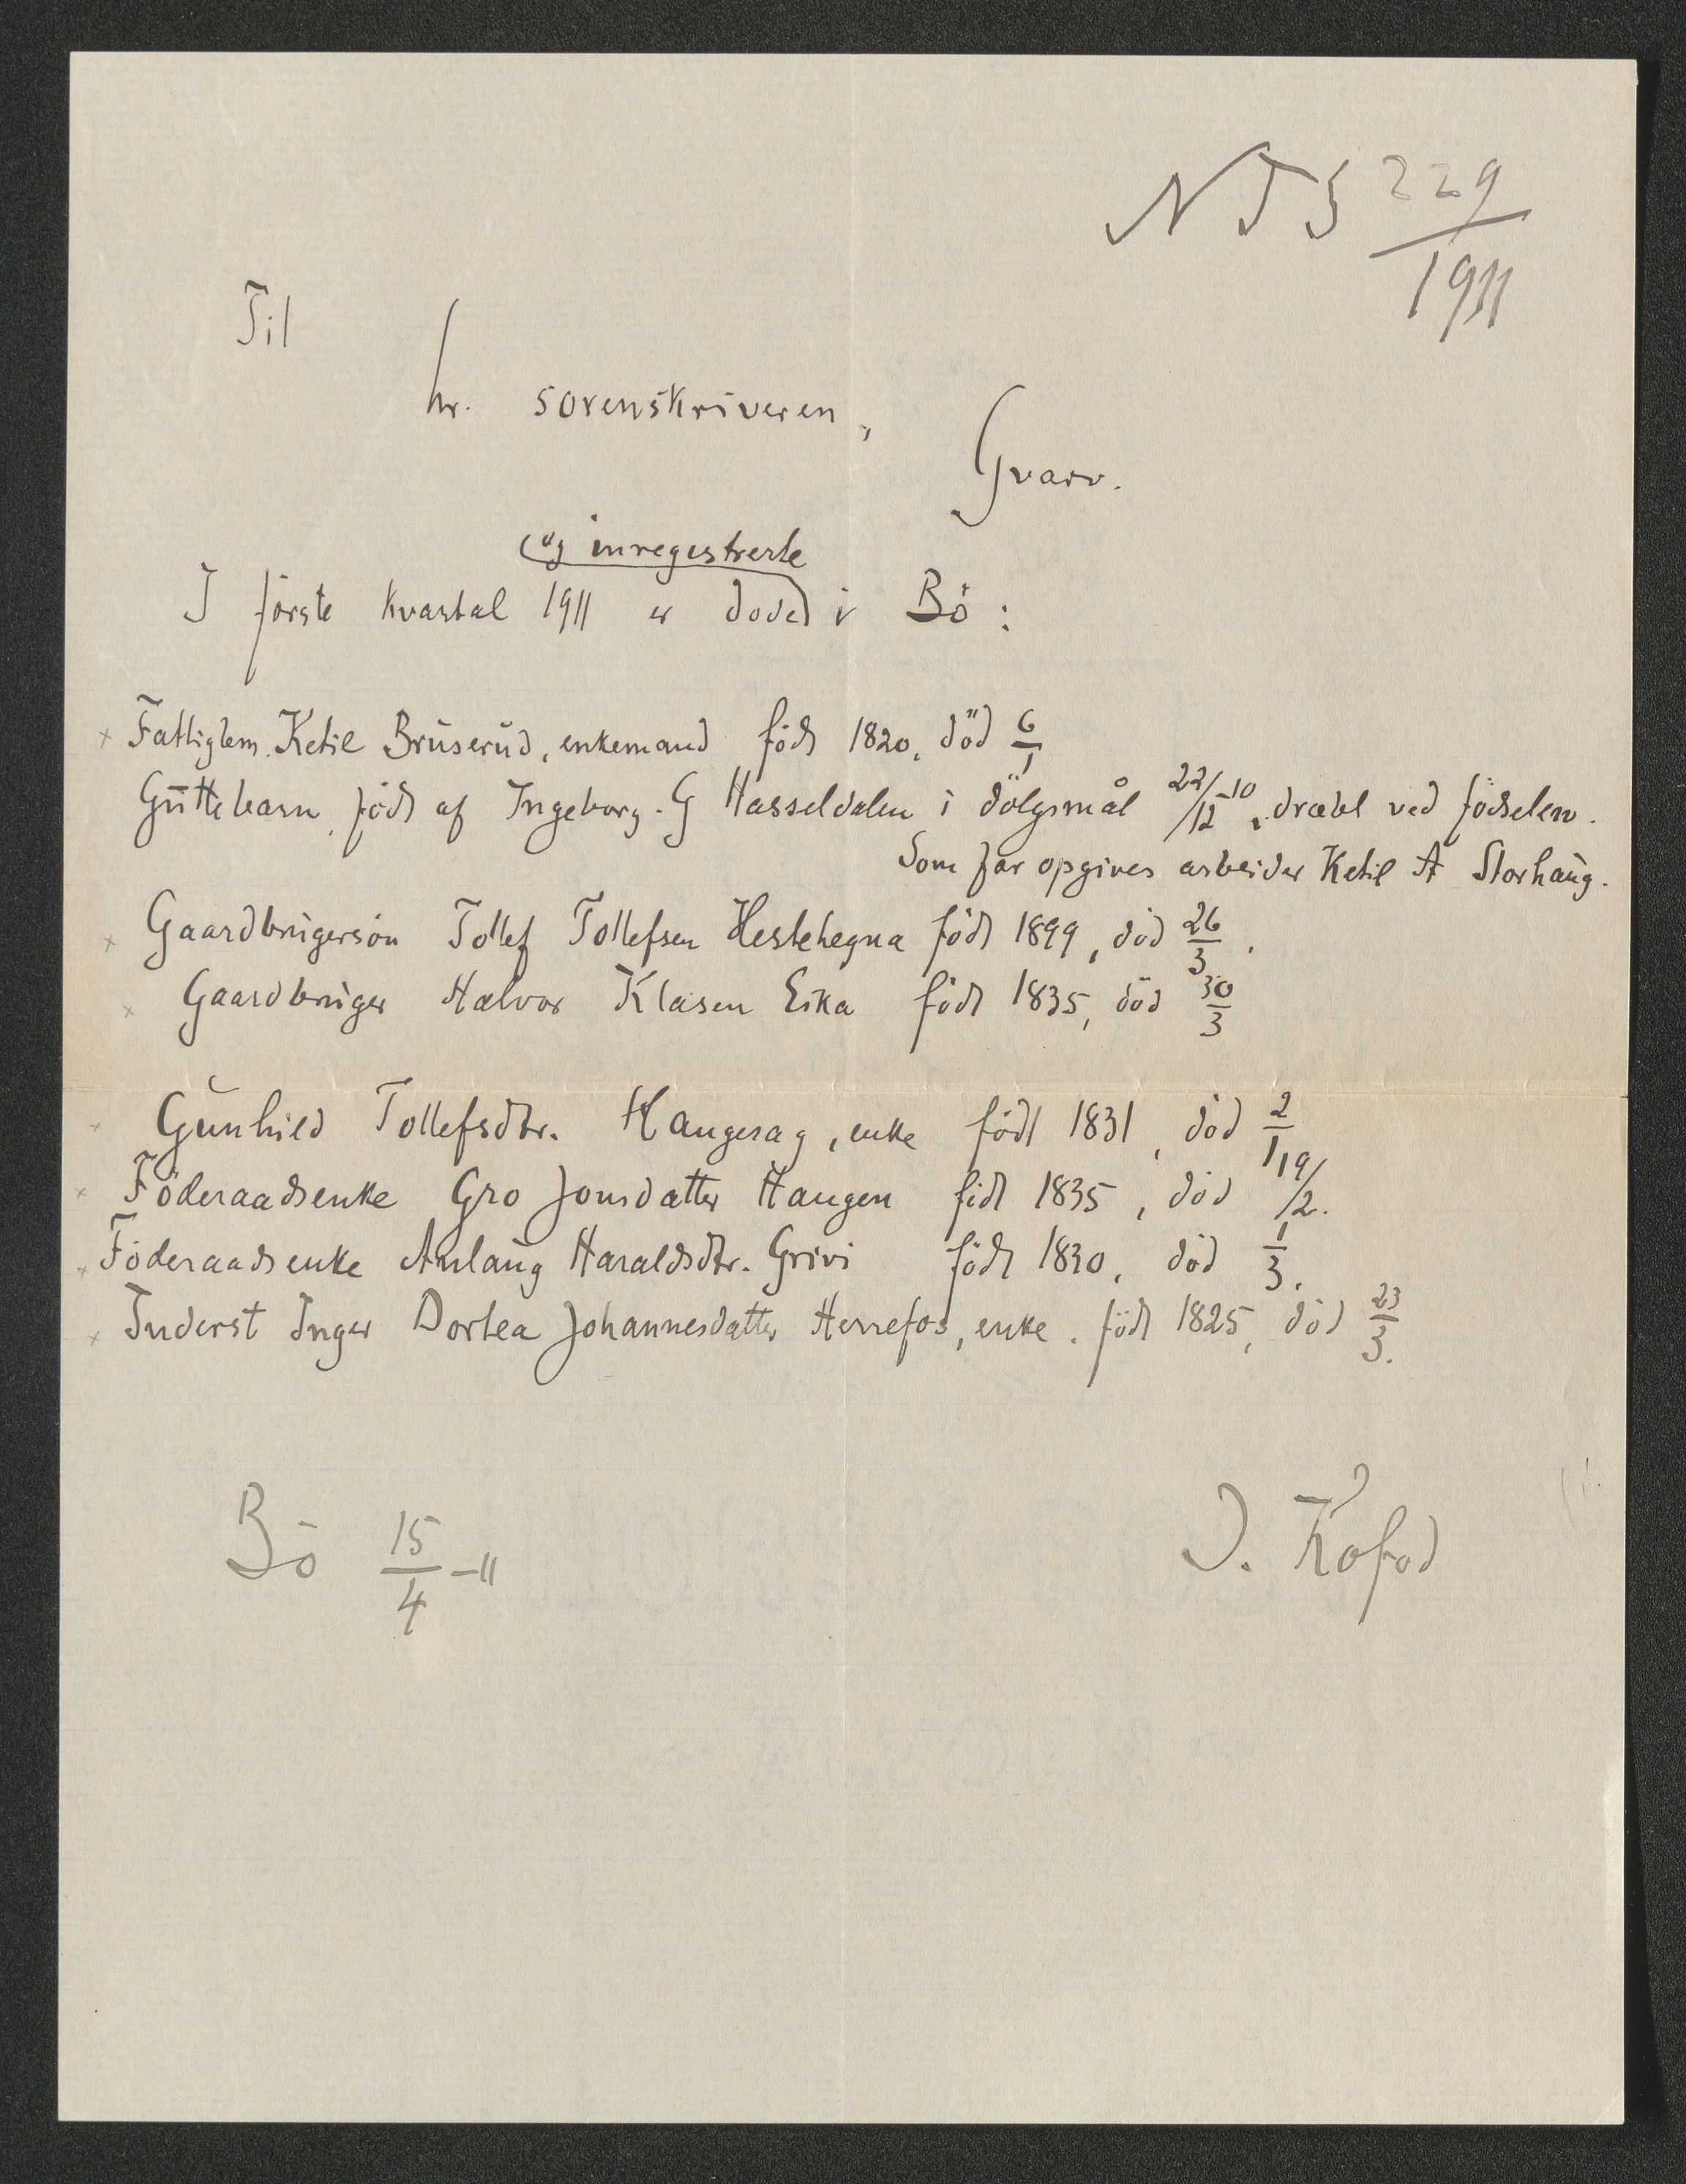 NTS 229/1911
Til
hr. sorenskriveren,
Gvarv.
(og inregistrerte
I förste kvartal 1911 er döde) i Bö:
× Fattiglem. Ketil Bruserud, enkemand född 1820, död 6/1
Guttebarn, född af Ingeborg. G Hasseldalen i dölgsmål 22/12-10, dræbt ved födselen.
Som far opgives arbeider Ketil A Storhaug.
× Gaardbrugersön Tollef Tollefsen Hestehegna född 1899, död 26/3.
× Gaardbruger Halvor Klasen Eika född 1835, död 30/3
× Gunhild Tollefsdtr. Haugerag, enke född 1831, död 2/1
× Föderaadsenke Gro Jonsdatter Haugen född 1835, död 19/2.
× Föderaadsenke Anlaug Haraldsdtr. Grivi född 1830, död 1/3.
× Inderst Inger Dortea Johannesdatter Herrefos, enke. född 1825, död 23/3.
Bö 15/4-11
J. Kofod